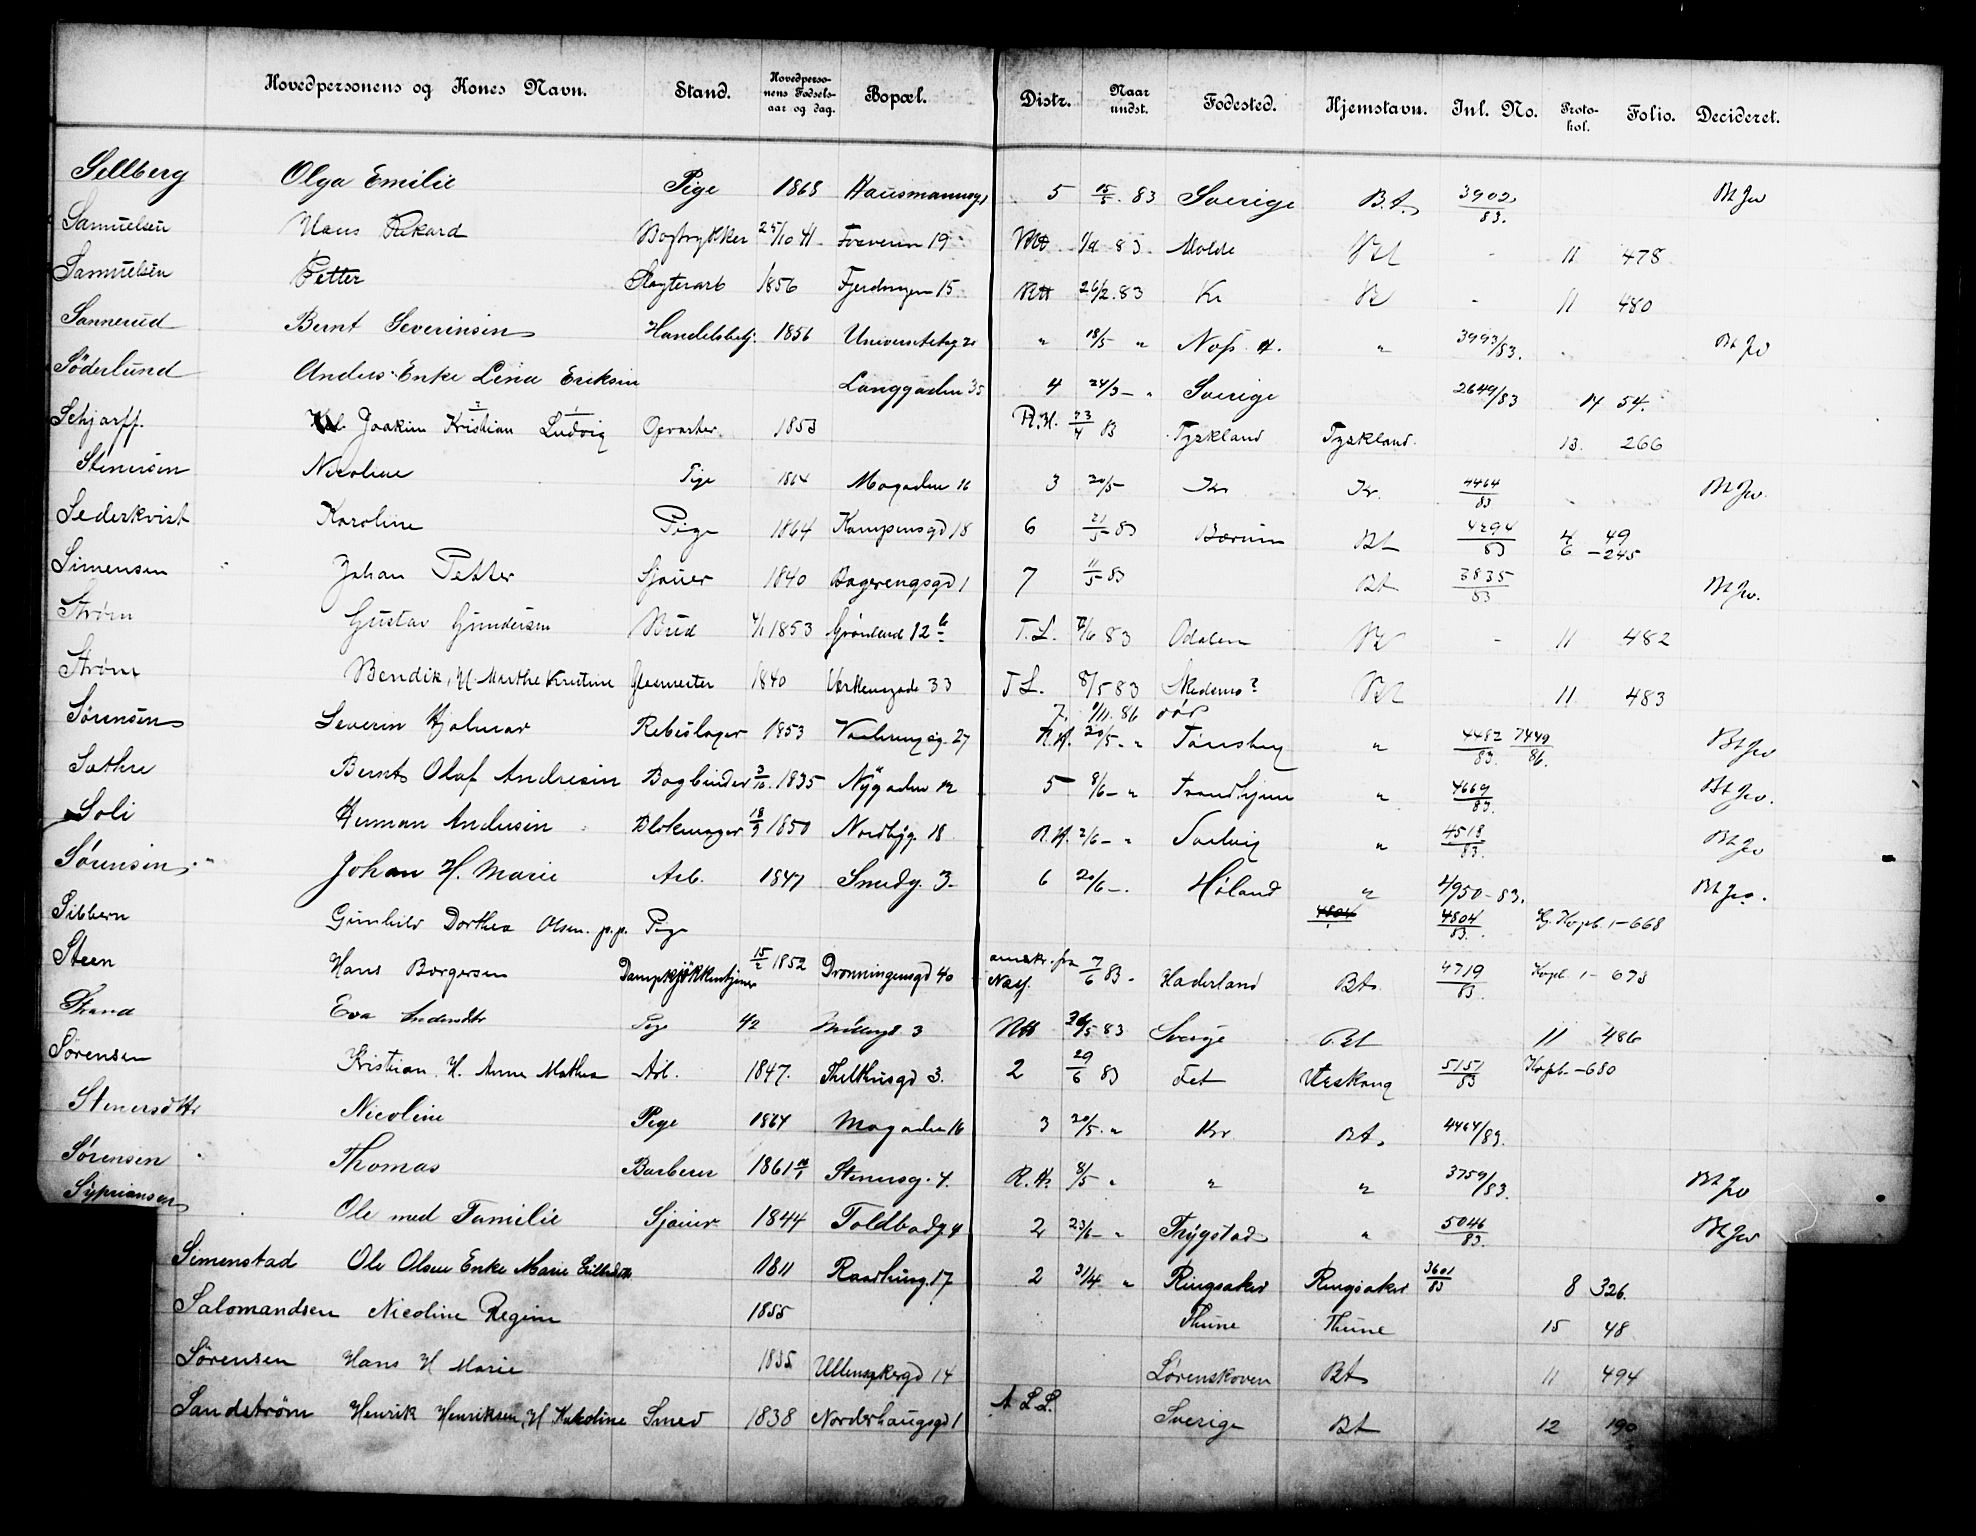 Hovedpersonens og Kones Navn. Stand. Hovedperso-nens Fødsels-aar og dag. Bopæl. Distr. Naar undst. Fødested. Hjemstavn. Inl. No. Proto-kol. Folio. Decideret.
Sellberg Olga Emilie Pige 1868 Hausmannsg 5 15/5. 83 Sverige B.t. 3902/83.
Samuelsen Hans Rikard Bogtrykker 25/10 41 19 83. Molde 11 478
Samuelsen Petter 1856 Fjerdingen 15 26/2. 83 Kr 11 480
Sannerud Bernt Severinsen Handelsbetj. 1856 Universitetsg 20 " 18/5 " " 3993/83.
Söderlund Anders Enke Lena Eriksen Langgaden 35 4 24/3 - " Sverige 2649/83 14 54.
Schjarff. Joakim Kristian Ludvig Opvarter. 1853 R.H. 23/4 83 Tyskland Tyskland. 13. 266
Stenersen Nicoline Pige 1864 Møgaden 16 3 20/5 - Kr Kr. 4464/83
Sederkvist Karoline Pige 1864 Kampensgd 18 6 21/5 83 Bærum Bt 4294/83 4 49 6 - 245
Simensen Johan Petter Sjauer 1840 Aagerengsgd 1 7 11/5 83 Bt 3835/83
Strøm Gustav Gundersen Bud 1853 Grønland 12 T.L. 83 Odalen - 11 482
Strøm Bendik, H Marthe Kristine 1840 33 T L. 8/5 83 11 483
7. 1/11. 86 død
Sørensen Severin Hjalmar Rebslager 1853 Vaalerengsg. 27 R.H. 20/5 - " Tønsberg " 4482/83. 7449/86.
Sæthre Bernt Olaf Andresen Bogbinder 3/10. 1835 Nygaden 12 5 8/6 - " Trondhjem " 4669/83.
Soli Herman Andersen 18/9 1850 Nordbyg. 18 R.H. 2/6 - " Svelvig " 4518/83.
Sørensen. Johan H. Marie Arb. 1847 Smedg. 3. 6 20/6 -. Høland " 4950 - 83.
Sibbern Gunhild Dorthea Olsen. p.p. Pige 4804 4804/83. 1 - 668
Steen Hans Borgersen Dampkjøkkentjener 15/2 1852 Dronningensgd 40 7/6 83 - Haderland Bt. 4719/83. 1 - 673
Strand Eva Andersdtr Pige 42 Møllergd. 3 83 Sverige Bt 11 486
Sørensen Kristian. H. Anne Mathea Arb. 1847. 3. 2 29/6 83 Fet 5151/83 Kopb. - 680
Stenersdttr Nicoline Pige 1864 Møgaden 16 3 20/5. " Kr. Bt. 4464/83.
Sørensen Thomas Barberer 1861 Stenersg. 4. R.H. 8/5 " " " 3759/83.
Sypriansen Ole med Familie Sjauer 1844 Toldbodg. 4 2 23/6 - " Trygstad " 5046/83.
Simenstad Ole Olsen Enke Marie 1811 Raadhusg. 17 2 " Ringsaker Ringsaker 3601/83 8 326.
Salomandsen Nicoline Regine 1855 Thune Thune 15 48
Sørensen Hans H Marie 1835 Ullensakergd 14 Lørenskoven Bt 11 494
Sandstrøm Henrik Henriksen, H Karoline Smed 1838 Norderhaugsgd 1 Sverige Bt 12 190